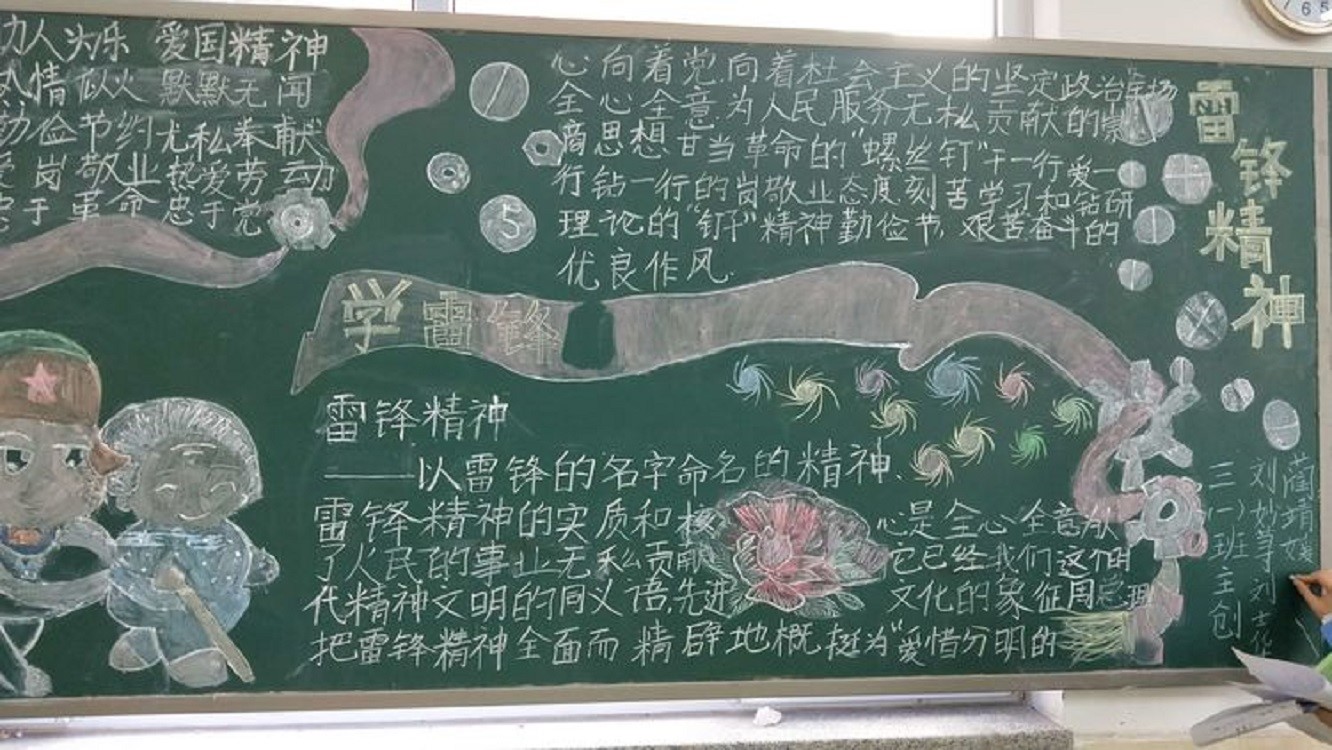 力人为乐 爱国精神
情似火 默默无闻
俭节约 尤私奉献
岗敬业 热爱劳动
于革命 忠于党
心向着党向着社会主义的坚定政治立场
全心全意为人民服务无私贡献的崇
高思想甘当革命的“螺丝钉”干一行爱一
行钻一行的岗敬业态度刻苦学习和钻研
理论的“钉子”精神勤俭节,艰苦奋斗的
优良作风.
雷锋精神
5
学雷锋
雷锋精神
——以雷锋的名字命名的精神.
雷锋精神的实质和核心是全心全意
了人民的事业无私贡献 它已经我们这个
代精神文明的同义语,先进文化的象征周总理
把雷锋精神全面而精辟地概挺为“爱惜分明的
三(一)班主创
刘妙
蔺靖
刘士华
6 5